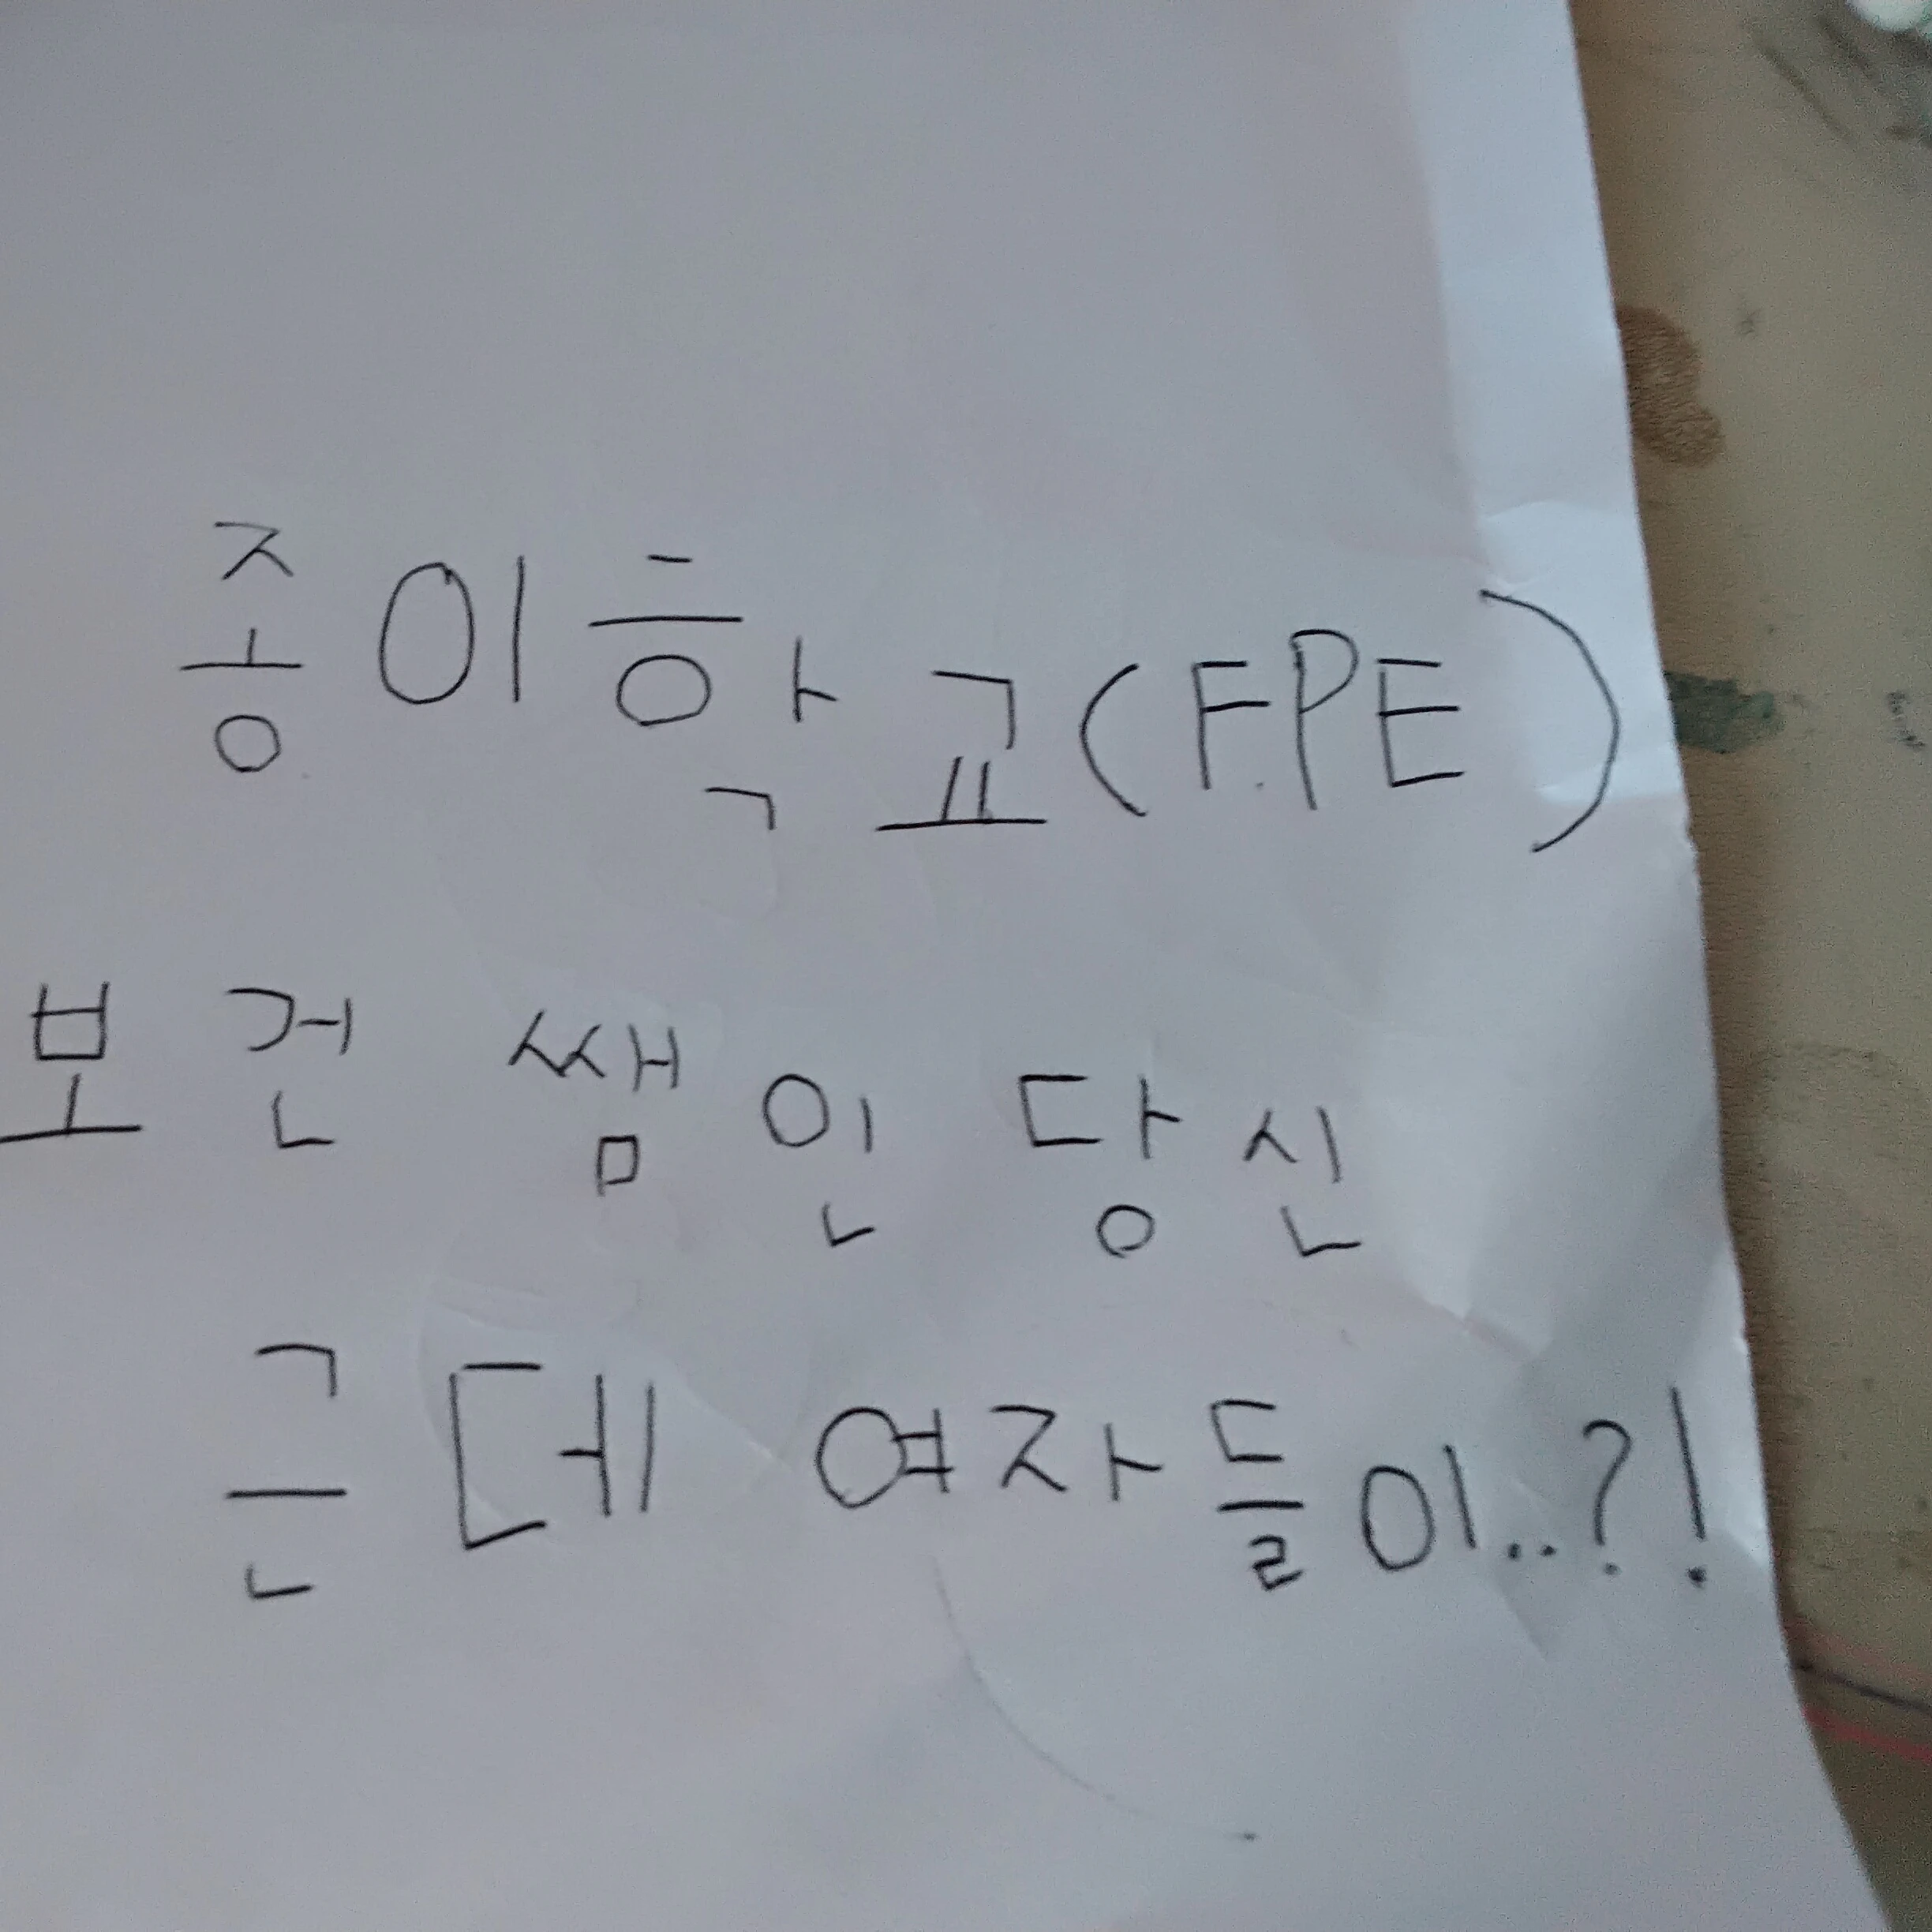 종이학교(F.PE)
보건 쌤인 당신
근데 여자들이..?!